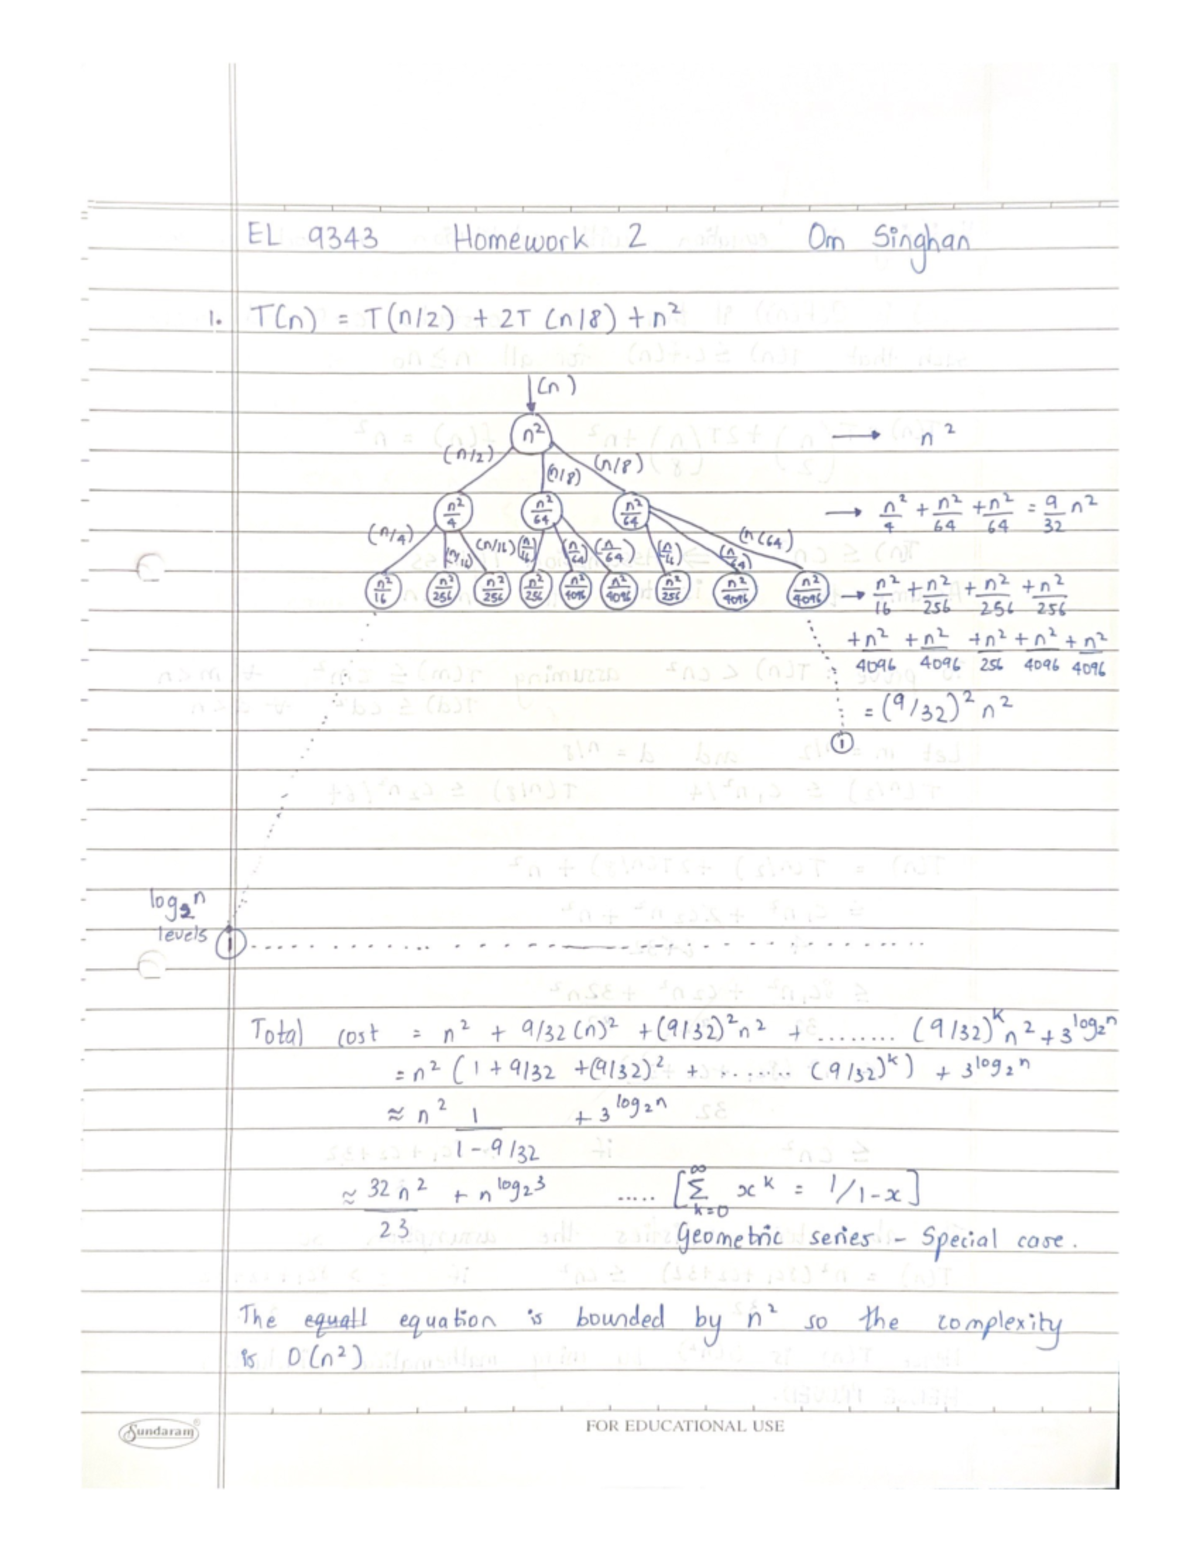 EL 9343 Homework 2 Om Singhan
1. T(n) = T(n/2) + 2T (n/8) + n²
(n)
n² → n²
(n/2) (n/8) (n/8)
n²/4 n²/64 n²/64 → n²/4 + n²/64 + n²/64 = 9/32 n²
(n/4) (n/16) (n/16) (n/16) (n/64) (n/64) (n/16) (n/64) (n/64)
n²/16 n²/256 n²/256 n²/256 n²/4096 n²/4096 n²/256 n²/4096 n²/4096 → n²/16 + n²/256 + n²/256 + n²/256
+ n²/4096 + n²/4096 + n²/256 + n²/4096 + n²/4096
= (9/32)² n²
1
log₂n
levels 1
Total cost = n² + 9/32 (n)² + (9/32)² n² + ........ (9/32)^k n² + 3^log₂n
= n² ( 1 + 9/32 + (9/32)² + ....... (9/32)^k ) + 3^log₂n
≈ n² 1/1-9/32 + 3^log₂n
≈ 32n²/23 + n^log₂3 ..... [∞ Σ k=0 x^k = 1/1-x]
Geometric series - Special case.
The equall equation is bounded by n² so the complexity
is O(n²)
Sundaram®
FOR EDUCATIONAL USE